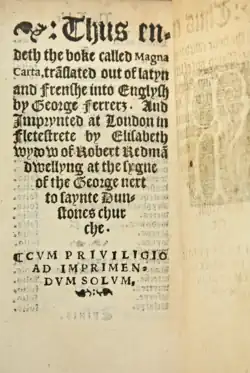 : Thus en-
deth the boke called Magna
Carta, trãslated out of latyn
and Frenshe into Englysh
by George Ferrerz. And
Imprynted at London in
Fletestrete by Elisabeth
wydow of Robert Redmã
dwellyng at the sygne
of the George next
to saynte Dun-
stones chur
che.
¶CVM PRIVILIGIO
AD IMPRIMEN-
DVM SOLVM,